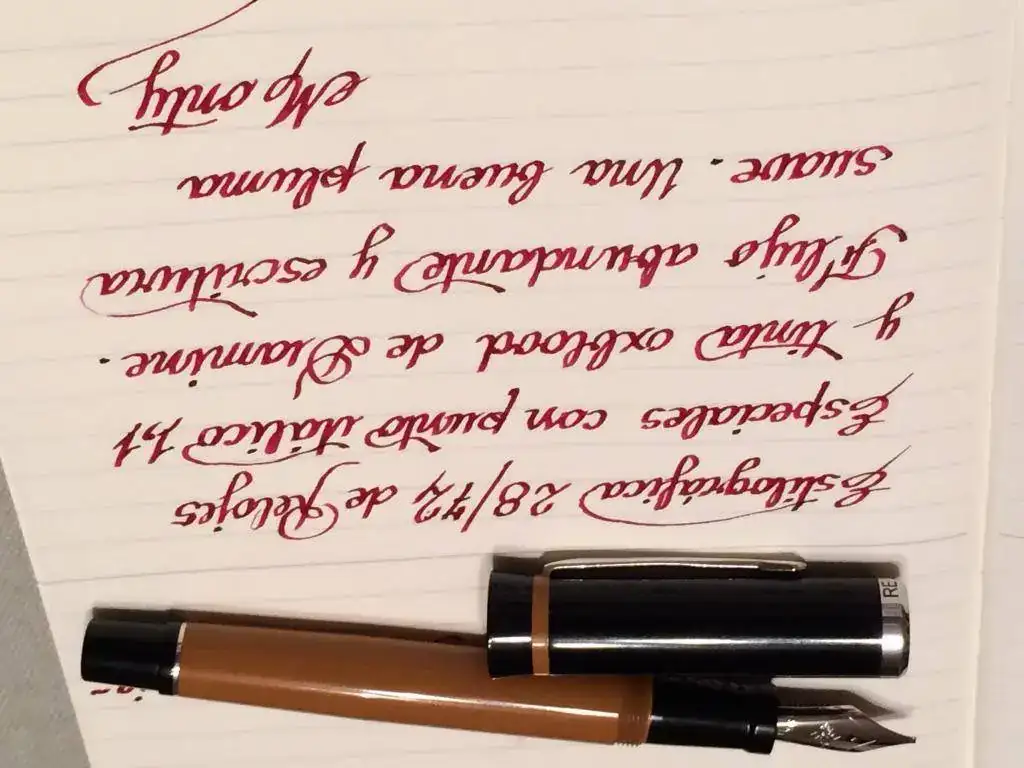 Estilográfica 28/72, de Relojes
Especiales con punto itálico 1,1
y tinta oxblood de Diamine.
Flujo abundante y escritura
suave. Una buena pluma
Monty
RE